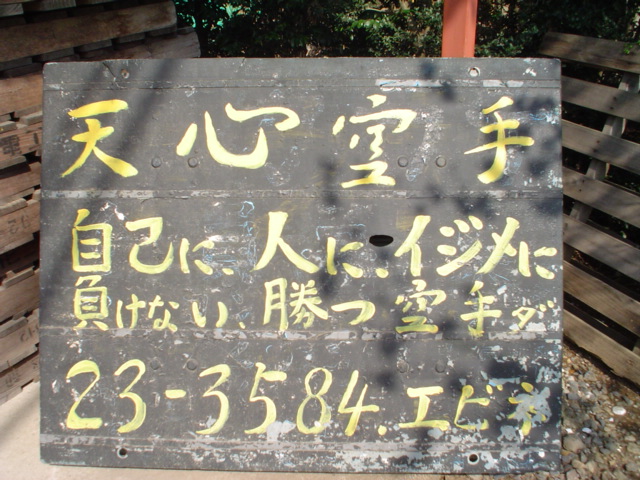 天心空手
自己に、人に、イジメに
負けない、勝つ空手ダ
23-3584.エビネ